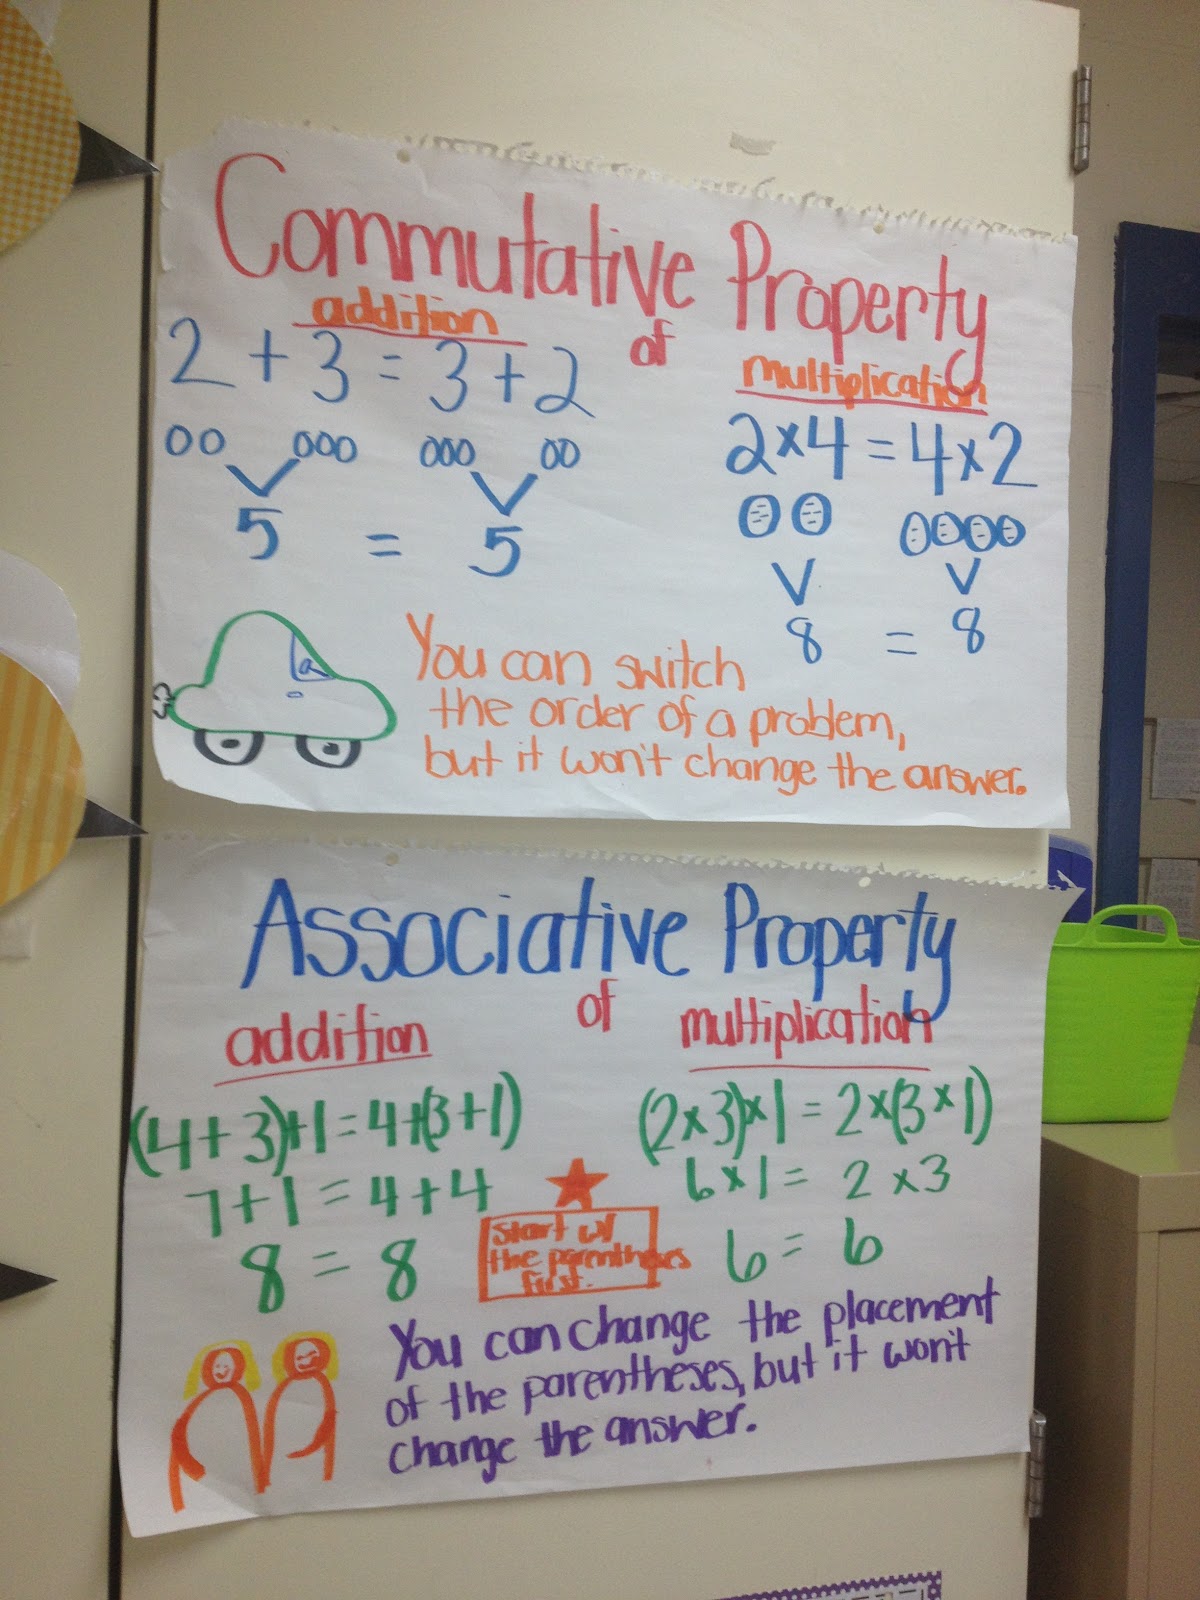 Commutative Property
of
addition
2 + 3 = 3 + 2
5 = 5
multiplication
2 x 4 = 4 x 2
8 = 8
You can switch
the order of a problem,
but it won't change the answer.
Associative Property
of
addition
(4 + 3) + 1 = 4 + (3 + 1)
7 + 1 = 4 + 4
8 = 8
multiplication
(2 x 3) x 1 = 2 x (3 x 1)
6 x 1 = 2 x 3
6 = 6
Start w/
the parentheses
first.
You can change the placement
of the parentheses, but it won't
change the answer.